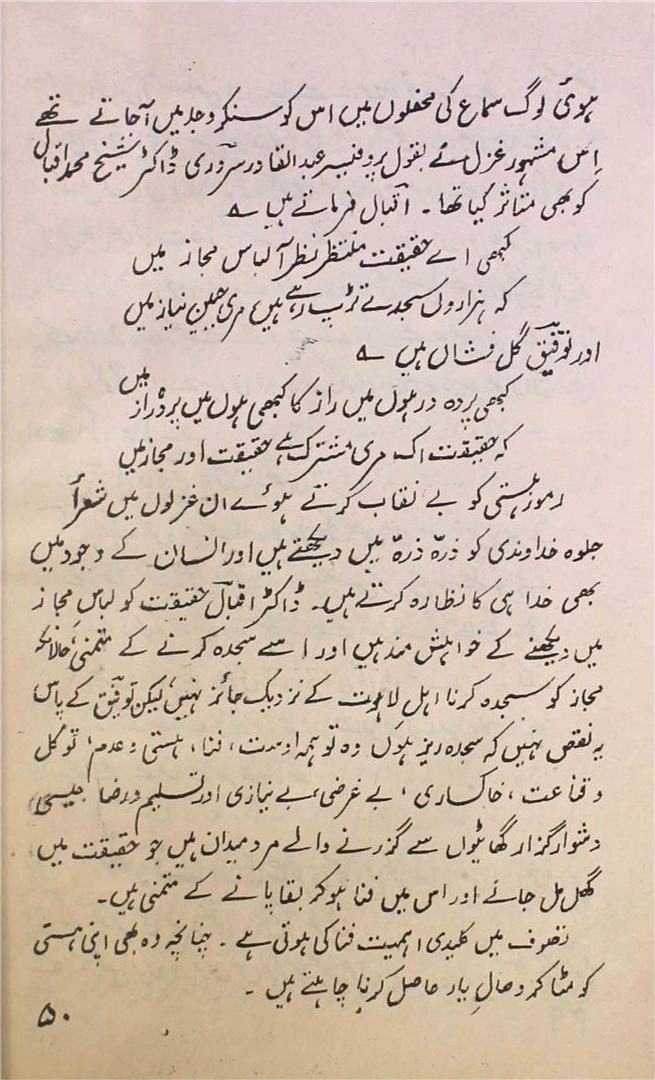 ہوئی لوگ سماع کی محفلوں میں اس کو سنکر وجد میں آجاتے تھے
اِس مشہور غزل نے بقول پروفیسر عبدالقادر سروری ڈاکٹر شیخ محمد اقبال
کو بھی متاثر کیا تھا ۔ اقبال فرماتے ہیں ؎
کبھی اے حقیقت منتظر نظر آ لباس مجاز میں
کہ ہزاروں سجدے تڑپ رہے ہیں مری جبینِ نیاز میں
اور توفیق گل فشاں ہیں ؎
کبھی پردہ در ہوں میں راز کا کبھی ہوں میں پردہ راز میں
کہ حقیقت اک مری مشترک ہے حقیقت اور مجاز میں
رموز ہستی کو بے نقاب کرتے ہوئے ان غزلوں میں شعرأ
جلوہ خداوندی کو ذرّہ ذرّہ میں دیکھتے ہیں اور انسان کے وجود میں
بھی خدا ہی کا نظارہ کرتے ہیں۔ ڈاکٹر اقبال حقیقت کو لباسِ مجاز
میں دیکھنے کے خواہش مند ہیں اور اسے سجدہ کرنے کے متمنی، حالانکہ
مجاز کو سجدہ کرنا اہل لاہوت کے نزدیک جائز نہیں، لیکن توفیق کے پاس
یہ نقص نہیں کہ سجدہ ریز ہوں وہ تو ہمہ اوست، فنا، ہستی و عدم، توکل
و قناعت، خاکساری، بے غرضی، بے نیازی اور تسلیم و رضا جیسی
دشوار گزار گھاٹیوں سے گزرنے والے مرد میدان ہیں جو حقیقت میں
گھل مل جائے اور اس میں فنا ہوکر بقا پانے کے متمنی ہیں۔
تصوف میں کلیدی اہمیت فنا کی ہوتی ہے ۔ چنانچہ وہ بھی اپنی ہستی
کو مٹا کر وصالِ یار حاصل کرنا چاہتے ہیں ۔
۵۰